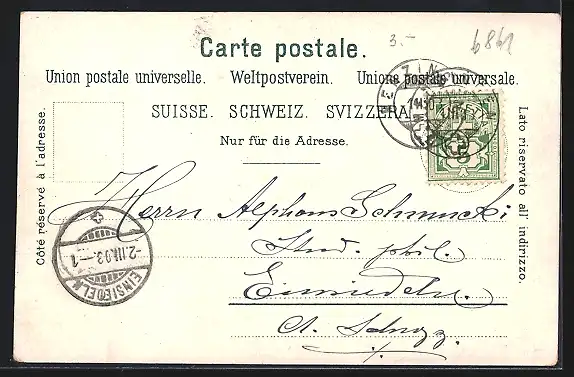 3.- 6861
Carte postale.
Union postale universelle. Weltpostverein. Unione postale universale.
SUISSE. SCHWEIZ. SVIZZERA.
Nur für die Adresse.
Côté réservé à l'adresse.
Lato riservato all' indirizzo.
Herrn Alphons
Stud. phil.
Einsiedeln
Ct. Schwyz.
EINSIEDELN
-2.III.03.-1